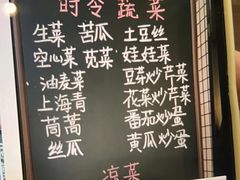 时令蔬菜
生菜 苦瓜 土豆丝
空心菜 苋菜 娃娃菜
油麦菜 豆芽炒芹菜
上海青 花菜炒芹菜
茼蒿 番茄炒蛋
丝瓜 黄瓜炒蛋
凉菜